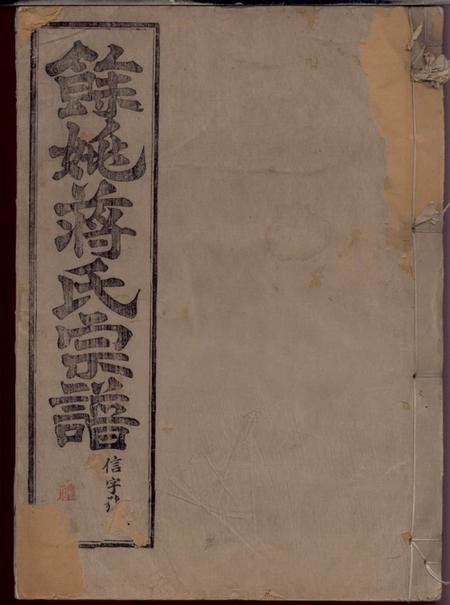 餘姚蔣氏宗譜
信字號
禮